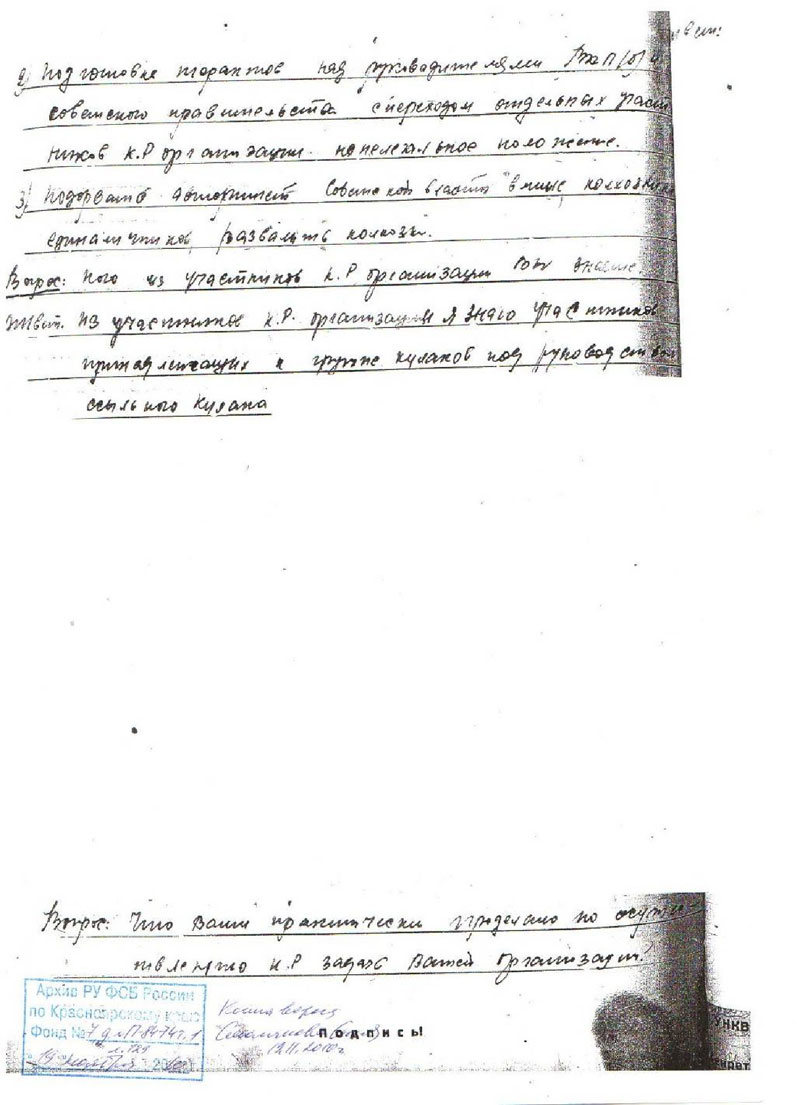 2) Подготовка терактов над руководителями ВКП(б) и
советского правительства с переходом отдельных участ
ников к.р организации на нелегальное положение.
3) Подорвать авторитет Советской власти в массе колхозников
единаличников, развалить колхозы.
Вопрос: Кого из участников к.р организации Вы знаете.
Ответ. Из участников к.р. организации я знаю участников
принадлежащих к группе кулаков под руководством
ссыльного кулака
Вопрос: Что Вами практически проделано по осущес-
твлению к.р задач Вашей организации?
Архив РУ ФСБ России
по Красноярскому краю
Фонд № 7 д. П-8474 т. 1
л. 121
19 ноября 2010
Копия верна
19.11.2010 г.
Подписы
УНКВ